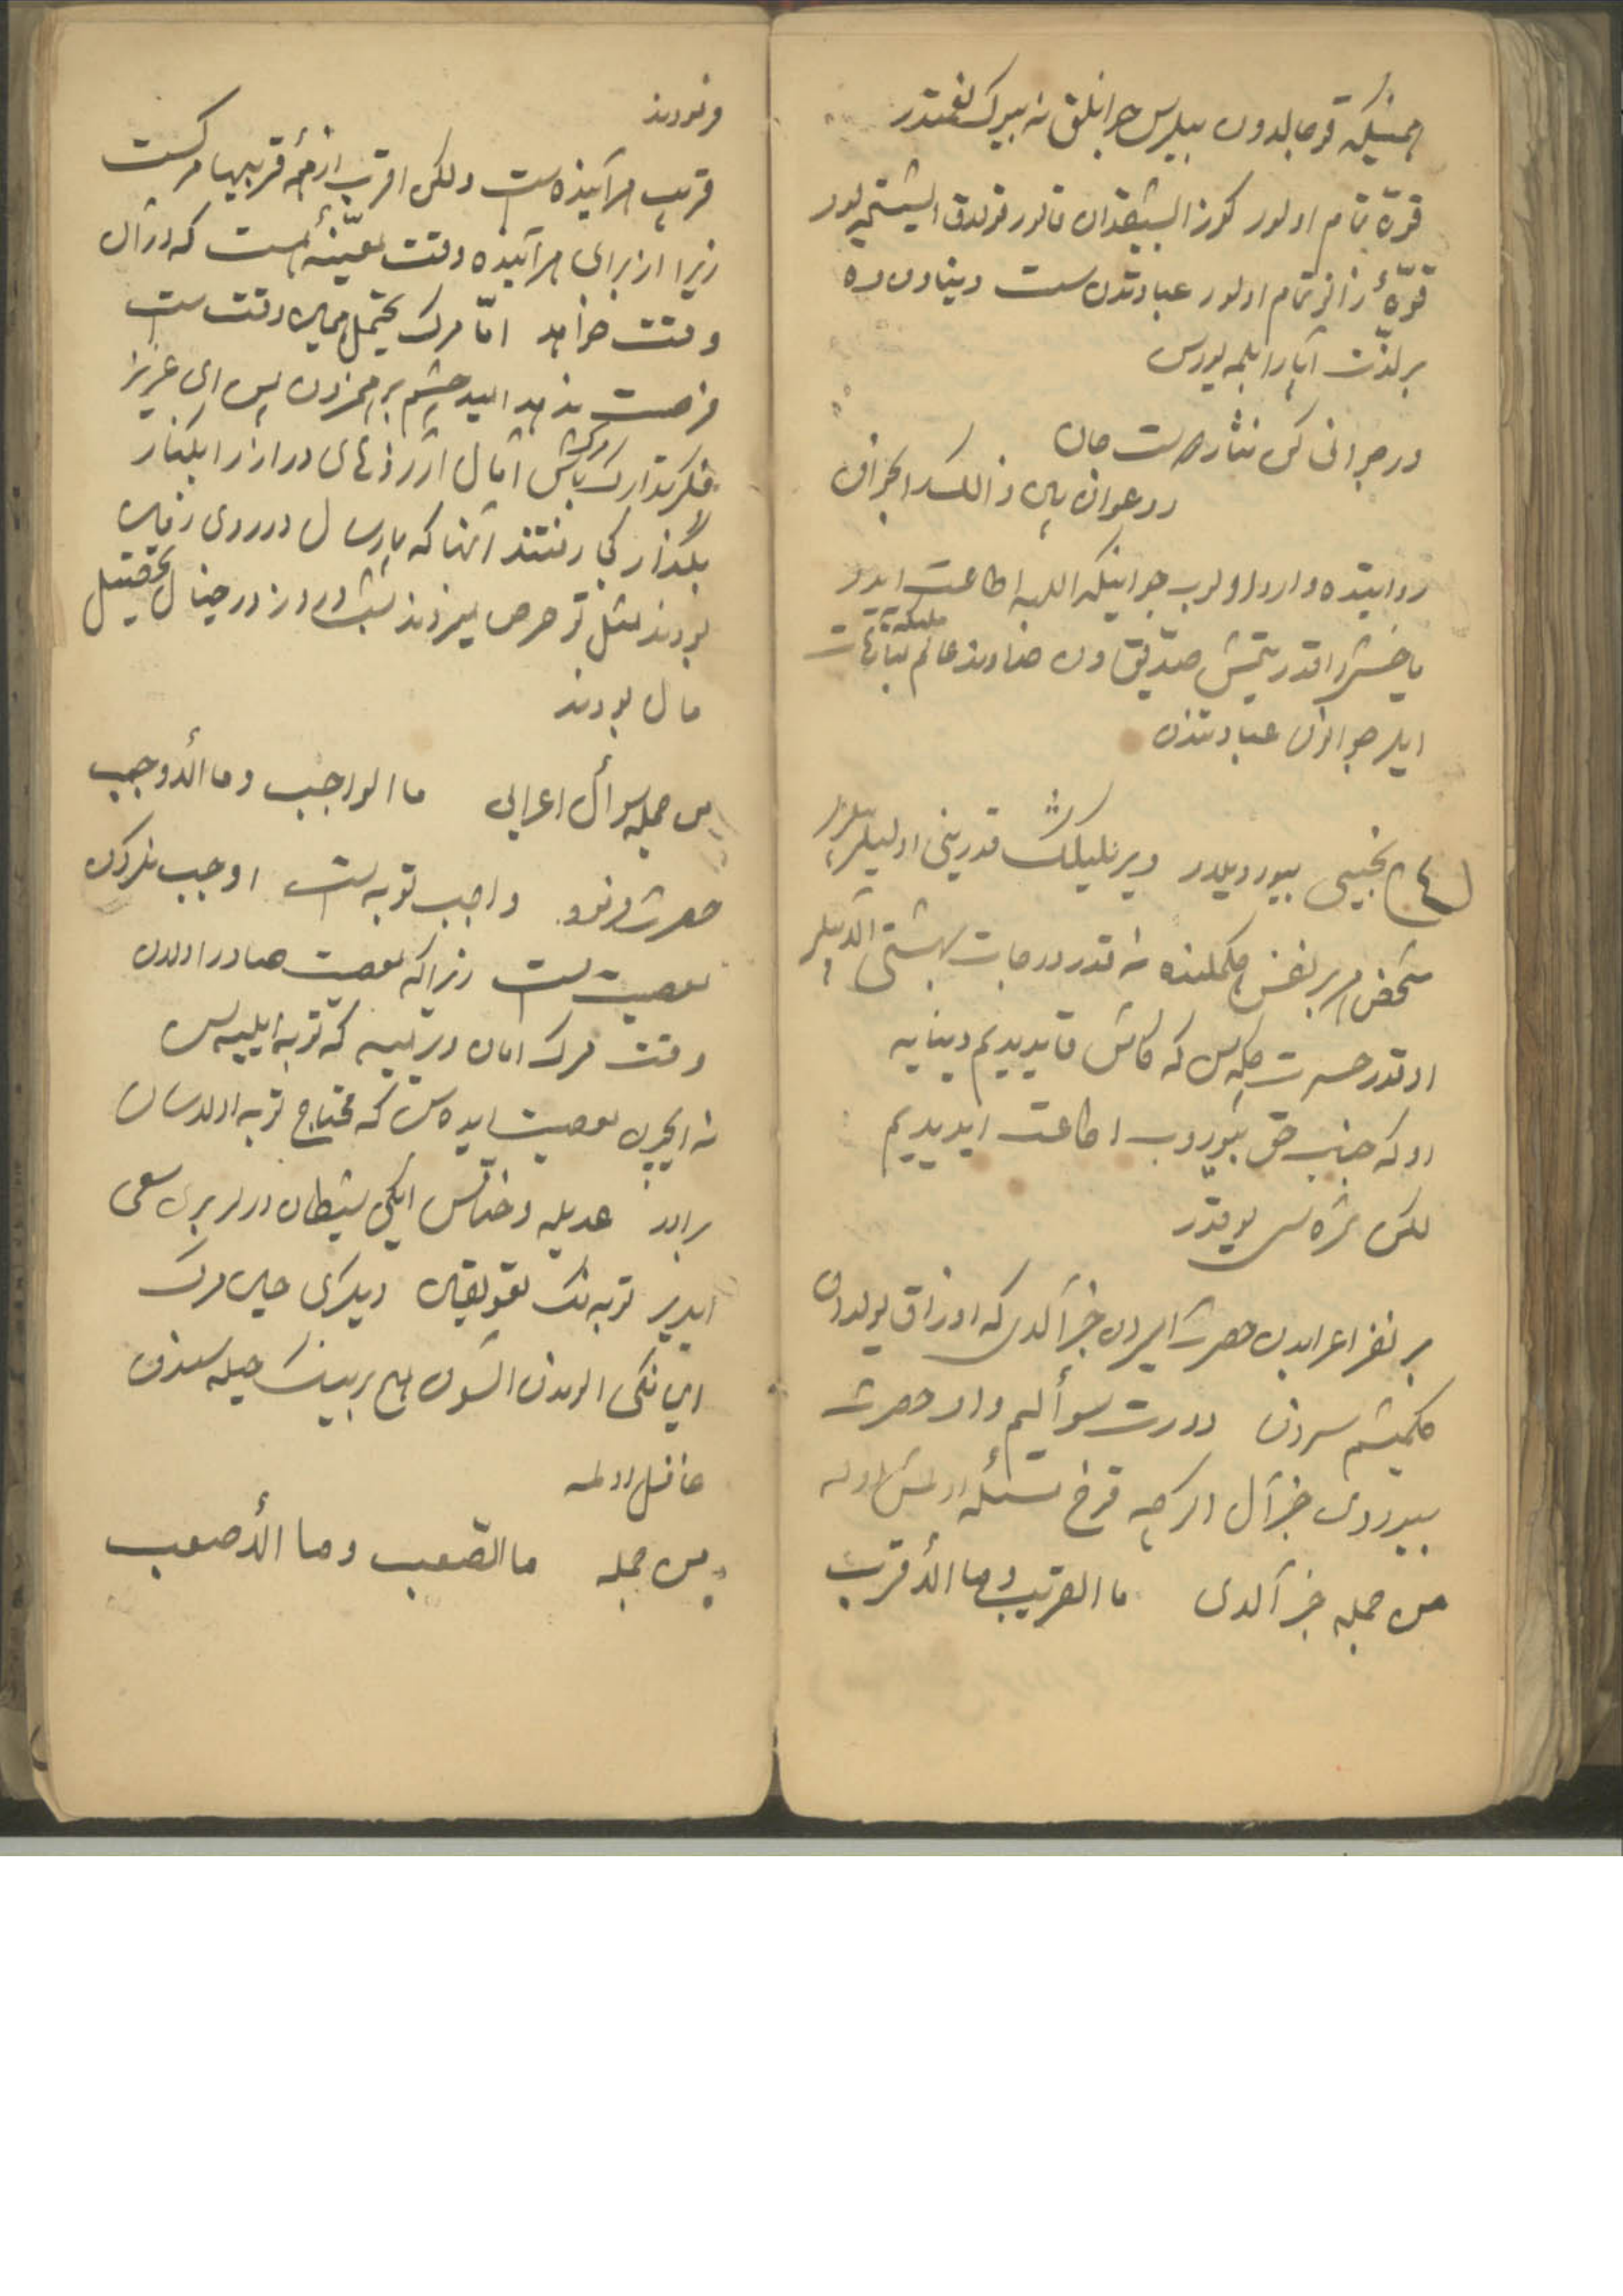 قوجالدون بیلرسن جوانلق نه بیوک نعمتدر
قوّة تمام اولور کوز ایشیقدان قالور قولاق ایشیتمیور
قوّهٔ زانو تمام اولور عبادتدن سست دنیادن ده
بر لذّت آپارا بلمیورسن
در جوانی کن نثار دوست جان
رو عوان بین ذالک را بخوان
روایتده وارد اولوب جوانیکه الله اطاعت ایدر
یتمش صدّیقدن خداوند عالم ملیکه مباهات
ایلر جوانون عبادتندن
نجیسی بیوردیلر دیریلیک قدرینی اولیلر بیلور
شخص هر بر نفس چکملنده نه قدر درجات بهشتی الدیلر
او قدر حسرت چکرسن که کاش قایدیدیم دنیایه
او که جنب حق بیوروب اطاعت ایدیدیم
لکن ثمره سی یوقدر
بر نفر اعرابدن حضرت امیردن خبر آلدی که اوزاق یولدان
کلمیشم سیزدن دورت سوألیم وار حضرت
بیوردی خبر آل اکرچه قرخ مسئله اولمش اوله
من جمله خبر آلدی ما القریب وما الأقرب
فرمودند
قریب هر آینده ست ولکن اقرب از همهٔ قریبها مرکست
زیرا از برای هر آینده وقت معیّنه است که در آن
وقت خواهد امّا مرک محتمل همین وقت ست
فرصت ندهد امید چشم بر هم زدن پس ای عزیز
بفکر تدارک مرک باش امال آرزوهای دراز را بکنار
بگذار کجا رفتند آنها که پارسال در روی زمین
بودند مثل تو حرص میزدند شب و روز در خیال تحصیل
مال بودند
من جمله سوأل اعرابی ما الواجب وما الأوجب
حضرت فرمود واجب توبه ست اوجب ترک
معصیت ست زیرا که معصیت صادر اولدی
وقت مرک امان ویرمیه که توبه ایلیه سن
نه ایچون معصیت ایده سن که محتاج توبه اولاسان
برادر عدیله و خنّاس ایکی شیطان درلر بری سعی
ایدیر توبه نک تعویقین دیکری حین مرک
ایمانکی الوندن السون هیچ برینک حیله سندن
غافل اولمه
من جمله ما الصّعب وما الأصعب